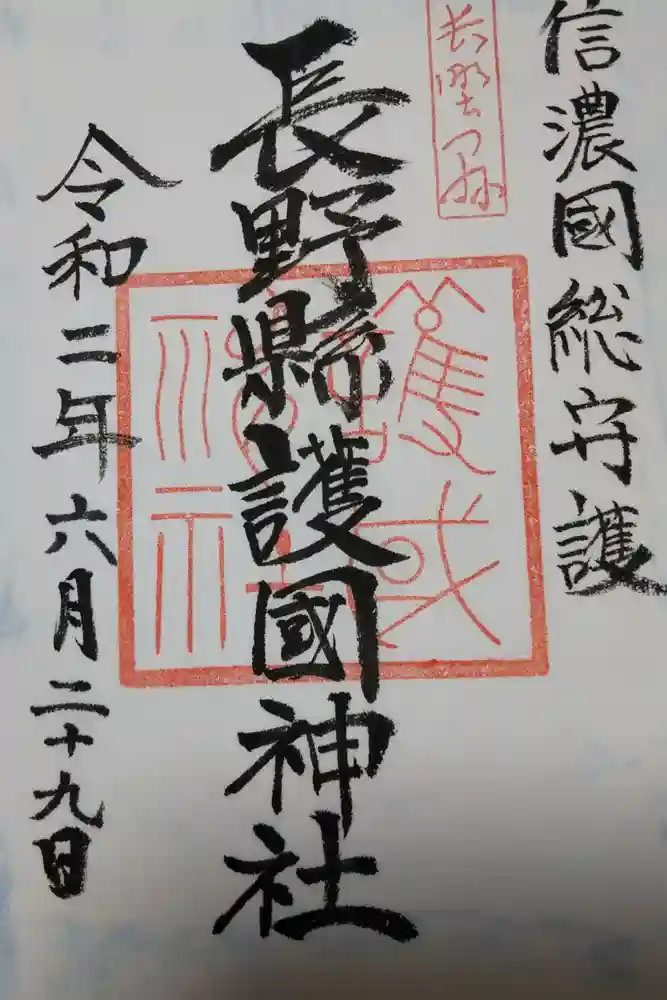 信濃國総守護
長野縣
長野縣護國神社
護國神社
令和二年六月二十九日